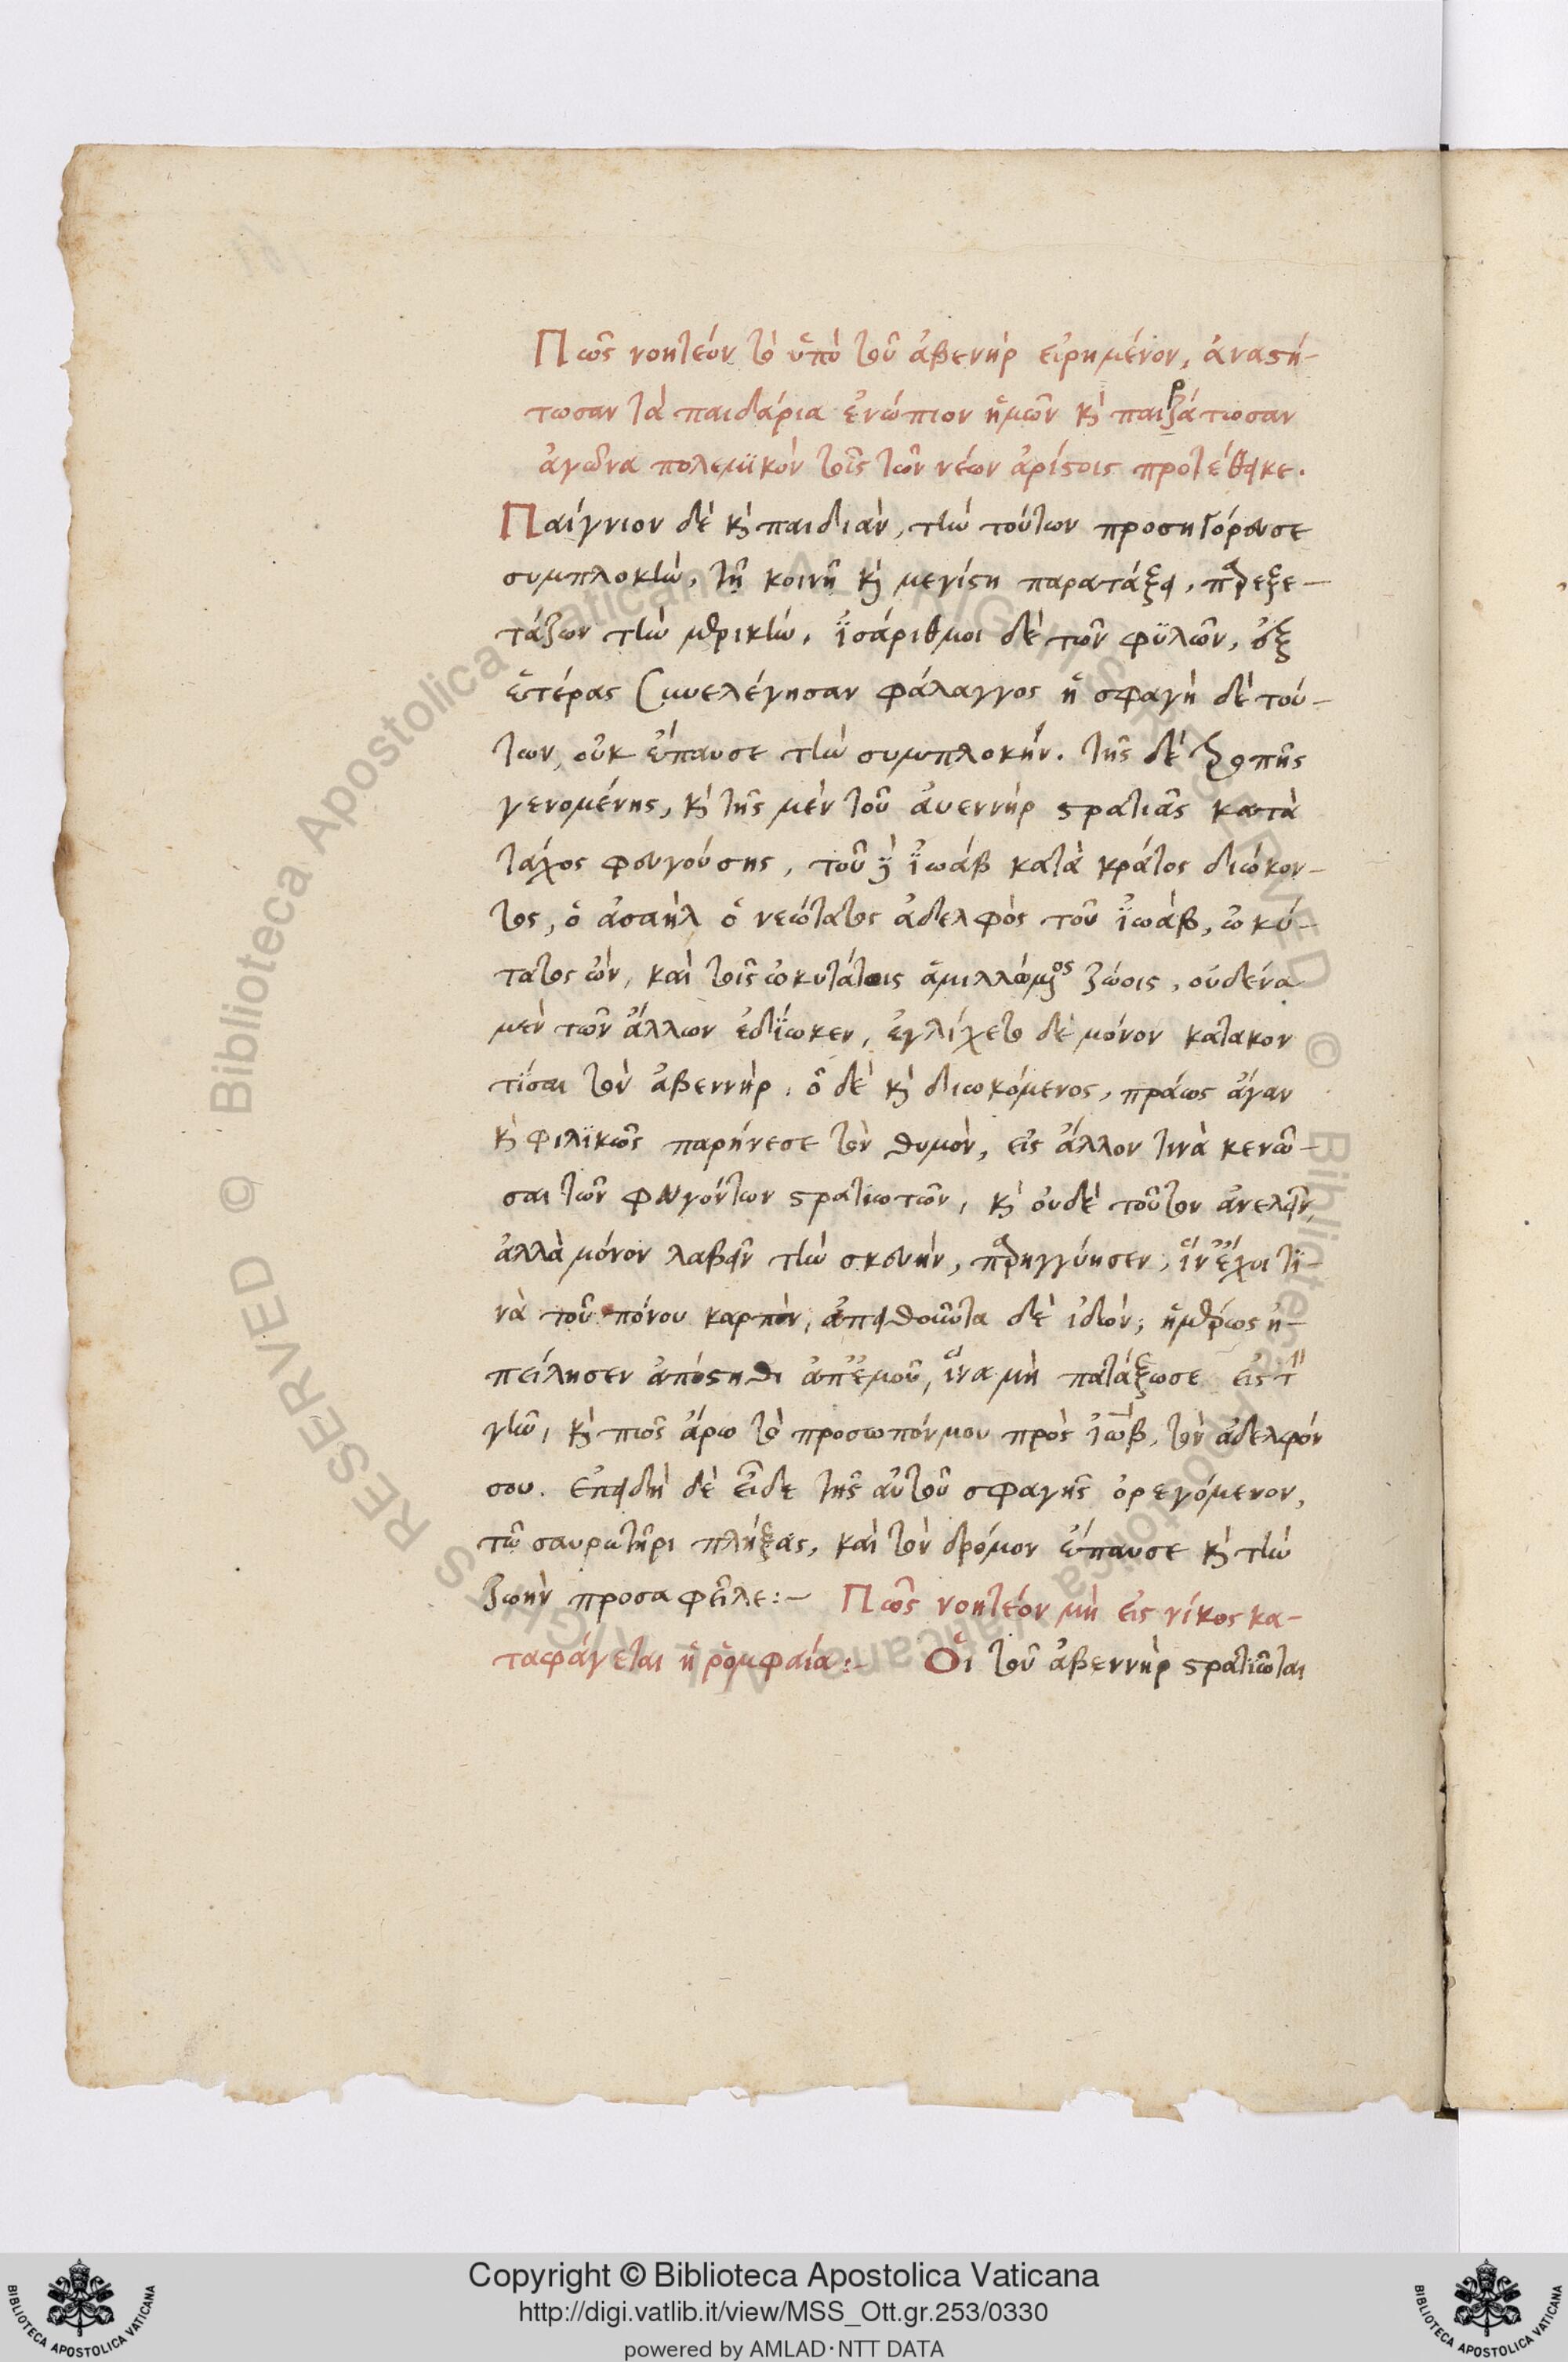 Πῶς νοητέον τὸ ὑπὸ τοῦ ἀβενὴρ εἰρημένον, ἀναστή-
τωσαν τὰ παιδάρια ἐνώπιον ἡμῶν κỳ παιξάτωσαν
ἀγῶνα πολεμϊκὸν τοῖς τῶν νέων ἀρίστοις προτέθεικε.
Παίγνιον δὲ κỳ παιδιὰν, τὴν τούτων προσηγόρευσε
συμπλοκὴν, τῇ κοινῇ κỳ μεγίστη παρατάξει, παρεξε-
τάζων τὴν μερικὴν, ἰσάριθμοι δὲ τῶν φϋλῶν, ἐξ
ἑτέρας συνελέγησαν φάλαγγος ἡ σφαγὴ δὲ τού-
των, οὐκ ἔπαυσε τὴν συμπλοκήν. τῆς δὲ τροπῆς
γενομένης, κỳ τῆς μὲν τοῦ ἀυεννὴρ στρατιᾶς κατὰ
τάχος φευγούσης, τοῦ δὲ ἰωάβ κατὰ κράτος διώκον-
τος, ὁ ἀσαὴλ ὁ νεώτατος ἀδελφὸς τοῦ ἰωάβ, ὠκύ-
τατος ὢν, καὶ τοῖς ὠκυτάτοις ἁμιλλώμενος ζώοις, οὐδένα
μὲν τῶν ἄλλων ἐδίωκεν, ἐγλίχετο δὲ μόνον κατακον
τίσαι τὸν ἀβεννὴρ. ὁ δὲ κỳ διωκόμενος, πράως ἄγαν
κỳ φιλϊκῶς παρήνεσε τὸν θυμὸν, εἰς ἄλλον τινὰ κενῶ-
σαι τῶν φευγόντων στρατιωτῶν, κỳ οὐδὲ τοῦτον ἀνελεῖν,
ἀλλὰ μόνον λαβεῖν τὴν σκευὴν, παρηγγύησεν, ἵν' ἔχοι τϊ-
νὰ τοῦ πόνου καρπὸν, ἀπειθοῦντα δὲ ἰδὼν, ἡμέρως ἠ-
πείλησεν ἀπόστηθι ἀπ' ἐμοῦ, ἵνα μὴ πατάξωσε εἰς τὴν
γῆν, κỳ πῶς ἄρω τὸ προσωπόν μου πρὸς ἰωὰβ, τὸν ἀδελφόν
σου. ἐπειδὴ δὲ εἶδε τῆς αὐτοῦ σφαγῆς ὀρεγόμενον,
τῷ σαυρωτῆρι πλήξας, καὶ τὸν δρόμον ἔπαυσε κỳ τὴν
ζωὴν προσαφεῖλε:– Πῶς νοητέον μὴ εἰς νίκος κα-
ταφάγεται ἡ ῥομφαία:– Οἱ τοῦ ἀβεννὴρ στρατιῶται
Copyright © Biblioteca Apostolica Vaticana
http://digi.vatlib.it/view/MSS_Ott.gr.253/0330
powered by AMLAD·NTT DATA